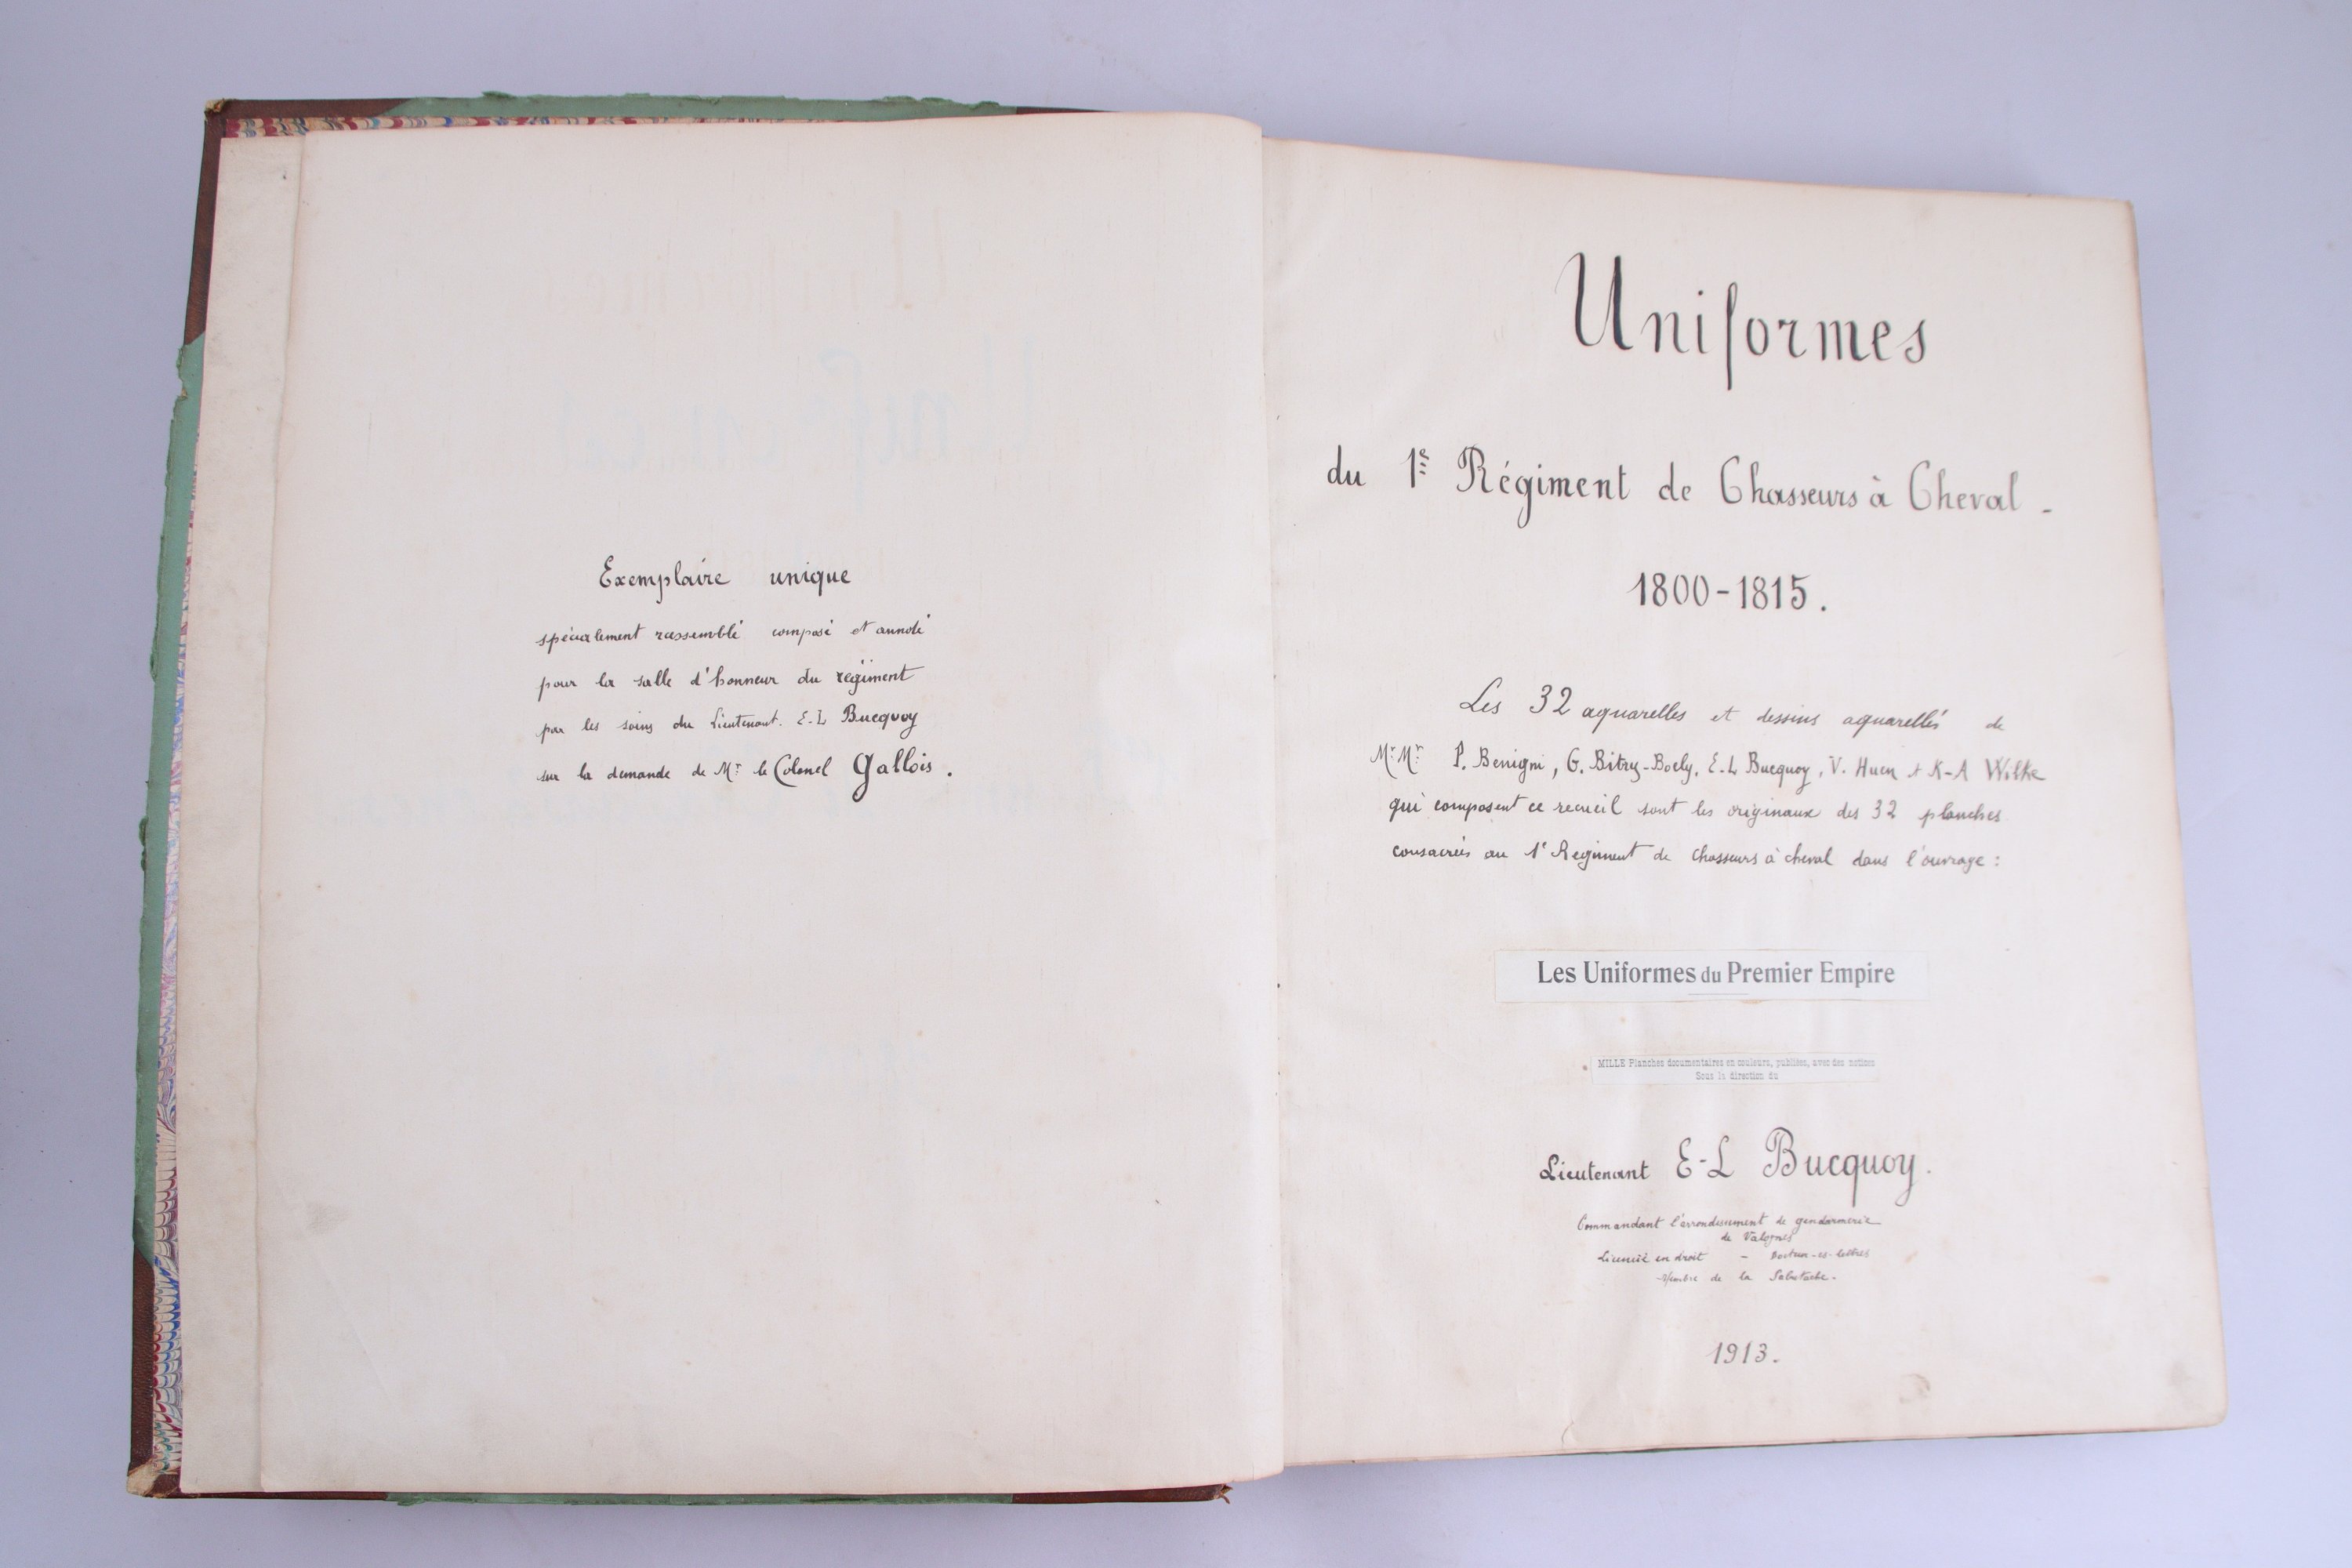 Exemplaire unique
spécialement rassemblé composé et annoté
pour la salle d'honneur du régiment
par les soins du Lieutenant. E-L Bucquoy
sur la demande de Mr le Colonel Gallois.
Uniformes
du 1e Régiment de Chasseurs à Cheval -
1800-1815.
Les 32 aquarelles et dessins aquarellés de
Mr Mr P. Benigni, G. Bitry-Boely, E-L Bucquoy, V. Huen et K-A Wilke
qui composent ce recueil sont les originaux des 32 planches
consacrées au 1e Regiment de Chasseurs à cheval dans l'ouvrage :
Les Uniformes du Premier Empire
MILLE Planches documentaires en couleurs, publiées, avec des notices
Sous la direction du
Lieutenant E-L Bucquoy.
Commandant l'arrondissement de gendarmerie
de Valognes
Licencié en droit - Docteur-es-lettres
Membre de la Sabretache.
1913.